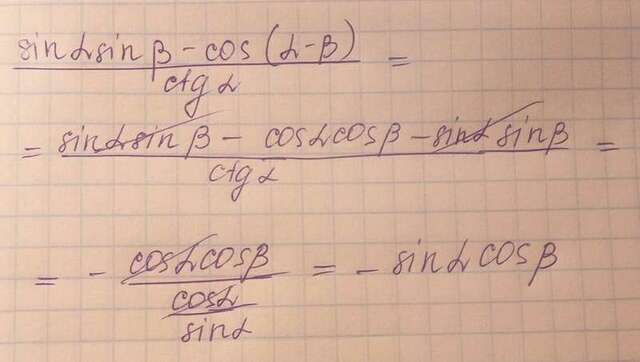 sinα sin β − cos (α−β) =
ctg α
= sinα sin β − cosα cosβ − sinα sinβ =
ctg α
= − cosα cosβ = − sinα cosβ
cosα
sinα